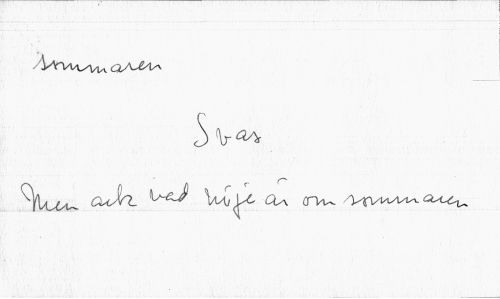 sommaren
Svar
Men ack vad nöje är om sommaren